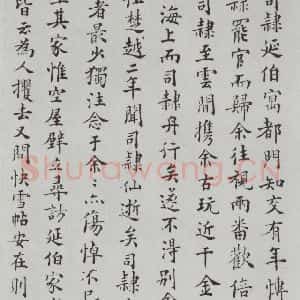 司隸延伯寓都門知交有年
隸罷官而歸余往視兩番歡倍
司隸至雲間攜余古玩近千金
海上而司隸舟行矣遂不得別
楚越二年聞司隸仙逝矣司隸
者最少獨注念于余〻亦傷悼不
至其家惟空屋壁立尋訪延伯家
皆云為人攫去又問快雪帖安在則
Shufawang.CN